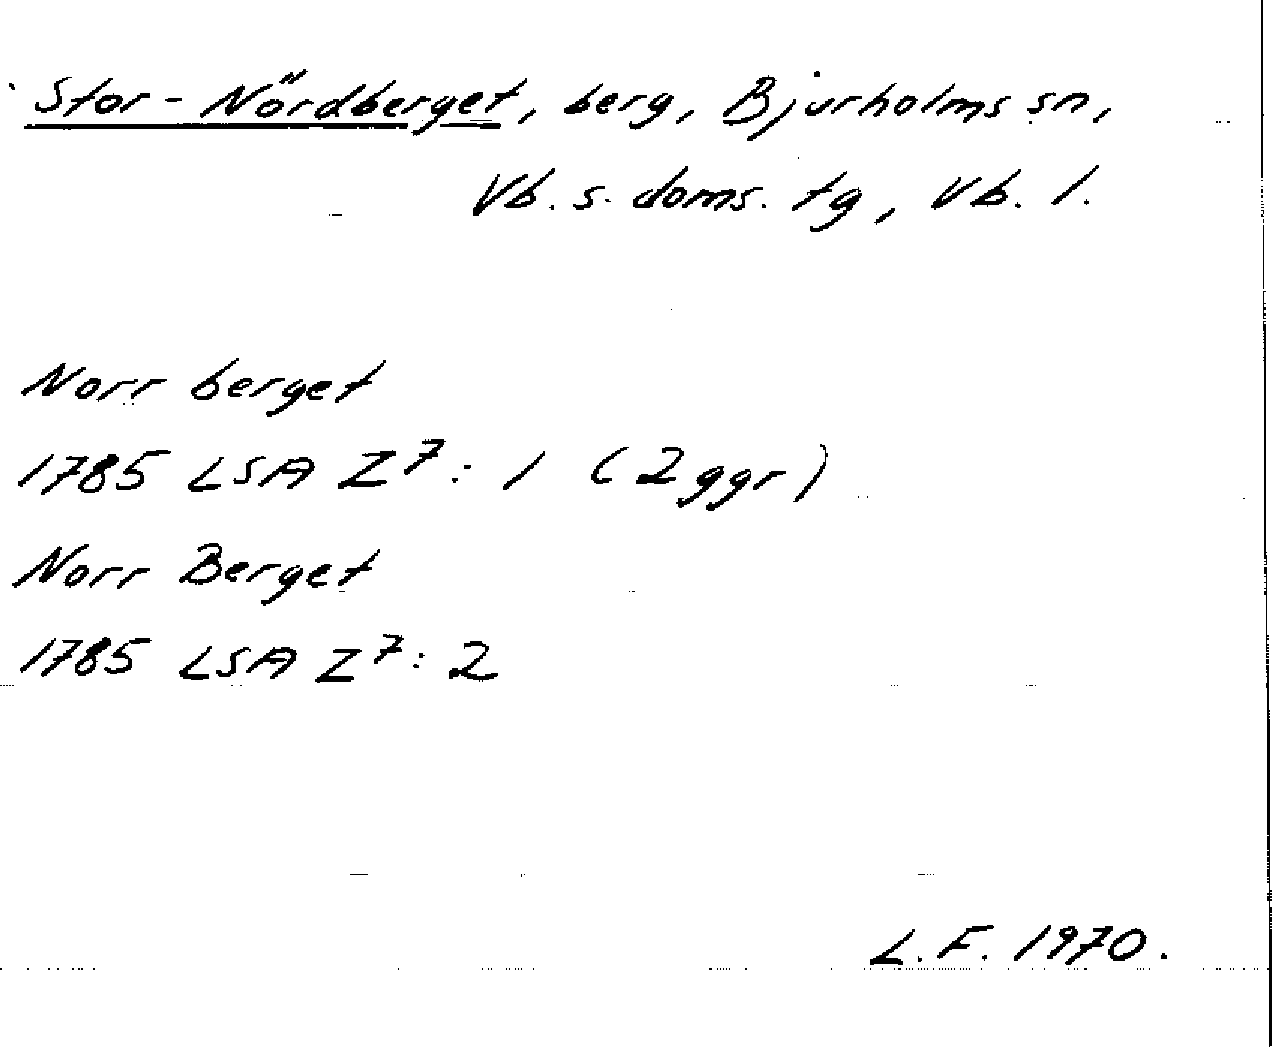 Stor-Nördberget, berg, Bjurholms sn,
Vb. s. doms. tg, Vb. l.
Norr berget
1785 LSA Z⁷: 1 (2 ggr)
Norr Berget
1785 LSA Z⁷: 2
L.F. 1970.